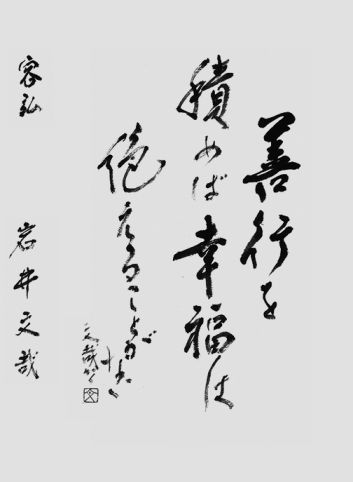 善行を
積めば幸福は
絶えることがない
文哉
容弘
岩井文哉